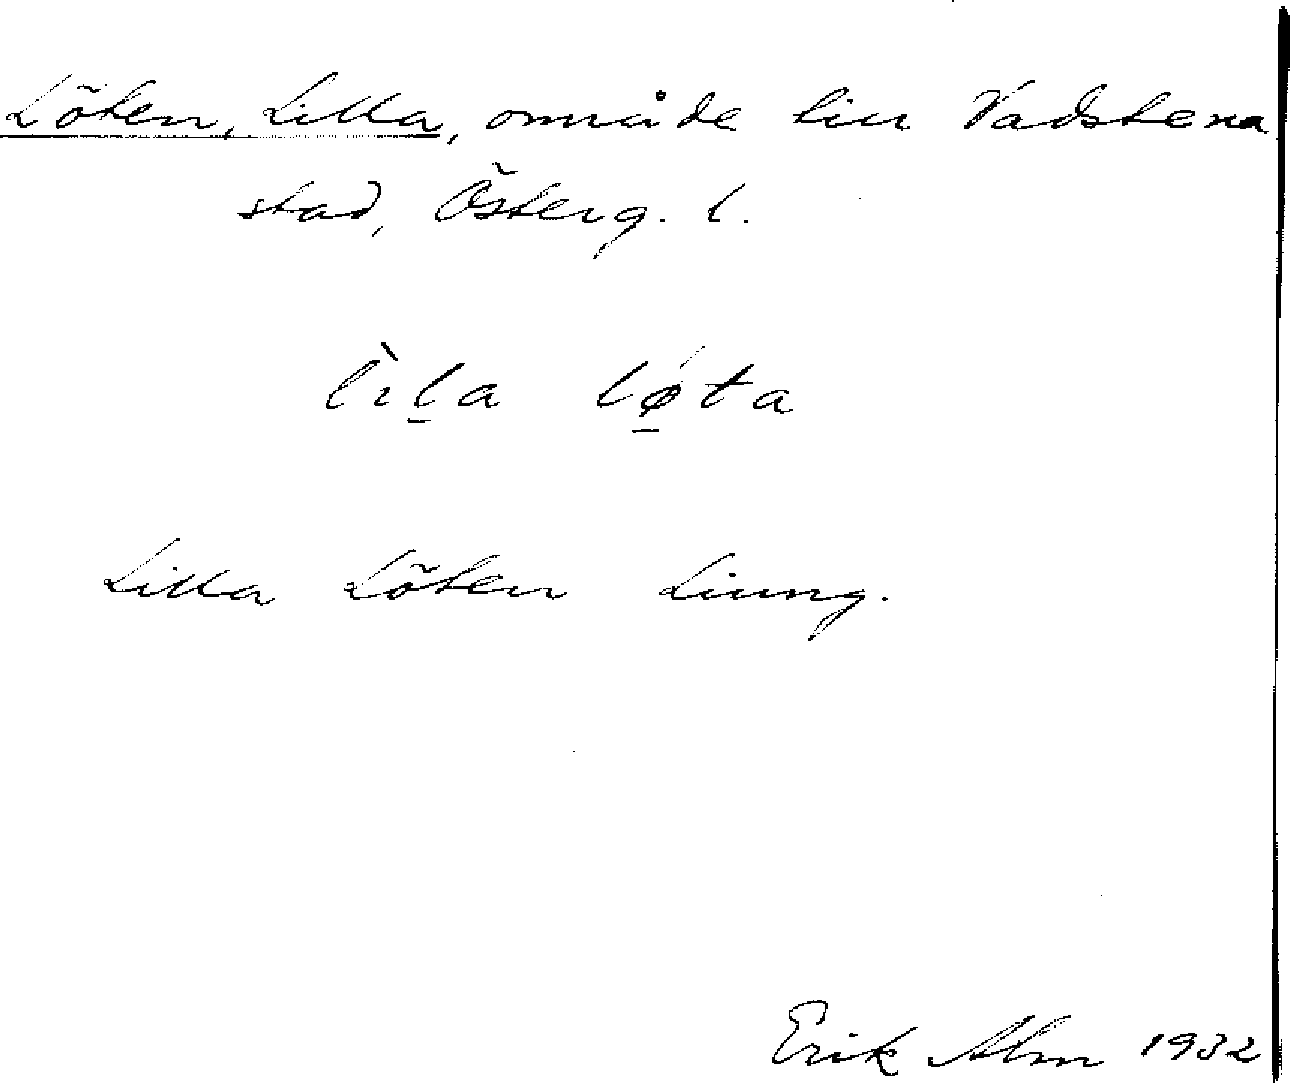 Löten, Lilla, område till Vadstena
stad, Österg. l.
lìla lǿta
Lilla Löten Liung.
Erik Alm 1932